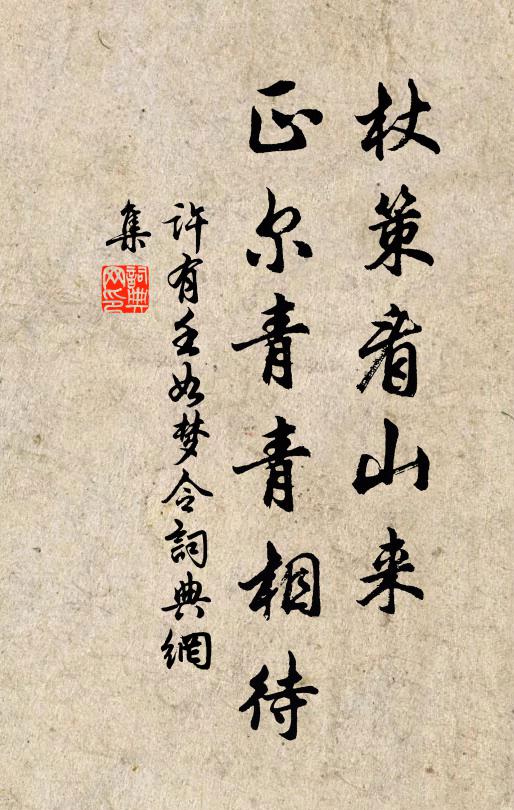 杖策看山来
正尔青青相待
许有壬如梦令詞典網
集
詞典
网印